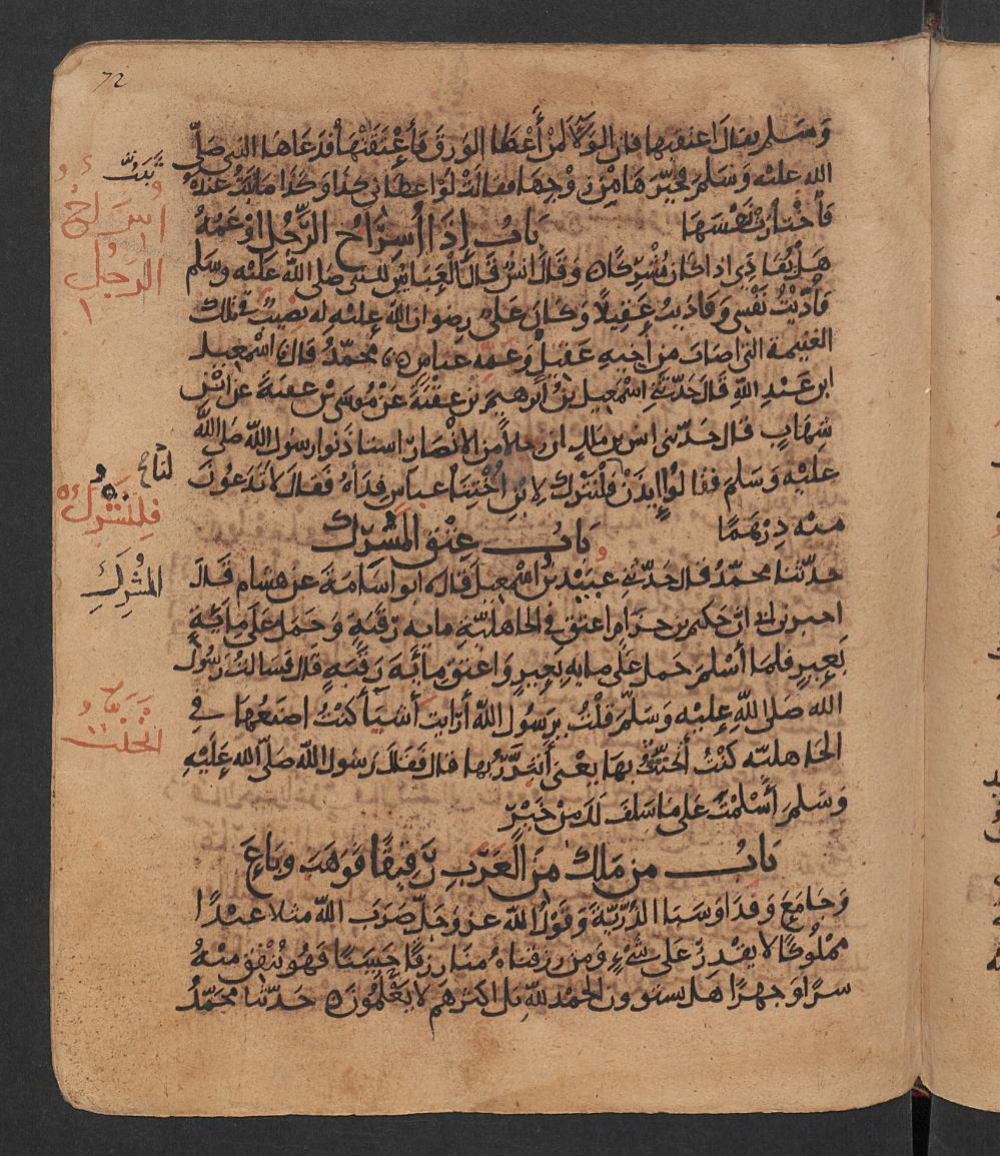 72
وَسَلم فقال اعتقيها فان الوَلَاَ لمن أَعْطا الوَرِقَ فَأَعْتَقْتُهَا فدَعَاهَا النبي صَلّى
الله عليه وَسَلمَ فخيّرَهَا مِنْ زوْجِهَا فقالتْ لَوْ اعطاني كذا وَكَذَا مَا ثبتُّ عندهُ
فَأختارَتْ نَفْسَهَا بَابُ إِذَا أُسِرَ أخُ الرَّجُلِ اوْ عَمّهُ
هَلْ يُفَادِي اذا كان مُشْرِكًا ه وَقَالَ انسٌ قَالَ العبَّاسُ للنبي صَلى اللّه عَليْه وسَلم
فَأدَيْتُ نَفْسِي وَفَادَيتُ عَقِيلًا وَكَانَ عَلي رضوان الله عليْهِ له نصِيبٌ في تلك
الغنيمة التي اصَابَ من أَخِيهِ عَقيلٍ وَعمّه عباس ه محمّدُ قال اسْمعِيل
ابن عَبْدِ اللّهِ قَال حَدّثني اسْمعِيل بنُ ابْرهيم بن عقْبَة عَنْ مُوسَى بْن عقبَة عَن ابْن
شِهَابٍ قال حَدّثني انس بن مَالكٍ ان رجَلاً من الانْصَارِ استاذَنوا رسُول اللّه صَلى اللَّه
عليْه وَسَلمَ فقَالوُا إيذَنْ فلْنَترُك لابْنِ اُخْتِنَا عباسٍ فدَأهُ فقَالَ لَا تَدَعُونَ
منْه دِرْهَمًا بَابُ عِتْقِ المشْرِك
حدّثنا محمّدُ قال حَدّثني عبَيْدُ بنُ اسْمعِيلَ قال ابو اسَامَة عن هشام قَالَ
اخبرني ابي انّ حَكيم بن حزَامٍ اعتق في الجَاهليّةِ مايه رَقَبةٍ وَحَمل عَلى مايَةِ
بَعيرٍ فلما أَسْلمَ حَمل عَلَى مايه بَعيرٍ وَاعتق مائَةَ رَقَبَةٍ قَال فَسَالتُ رَسُولَ
الله صَلى اللّهِ عليْه وَسَلّمَ قلْتُ يرَسُول اللّه أرَايت أشيَأ كُنْتُ اصنَعُهَا في
الجَاهليّه كنْتُ أَتحنّثُ بهَا يعْني أَتبَرَّرُ بها قال فَقَالَ رَسُولُ اللّه صَلّى الله عَلَيْهِ
وَسَلم أَسْلَمْتَ عَلى مَا سَلفَ لَكَ مِنْ خَيْرٍ
بَابُ مَن مَلك مِنَ الْعَرَبِ رَقِيقًا فَوَهَبَ وبَاعَ
وَجَامَعَ وَفدَا وَسَبَا الذُّرِّيَّةَ وَقَوْلُ اللّه عزوَجَلّ ضَرَبَ اللّه مثلا عبْدًا
ممْلُوكًا لا يقْدِرُ عَلى شيْءٍ وَمن رزقناهُ مِنّا رِزقًا حَسَنًا فَهُو يُنْفِق منْهُ
سرًا وجَهرًا هَل يستوون الحمْد للهِ بَل اكثرهم لا يَعْلمُونَ ه حَدّثنا محَمّدُ
أسر أخُ
الرجُل
فلنترك
المشْرِكِ